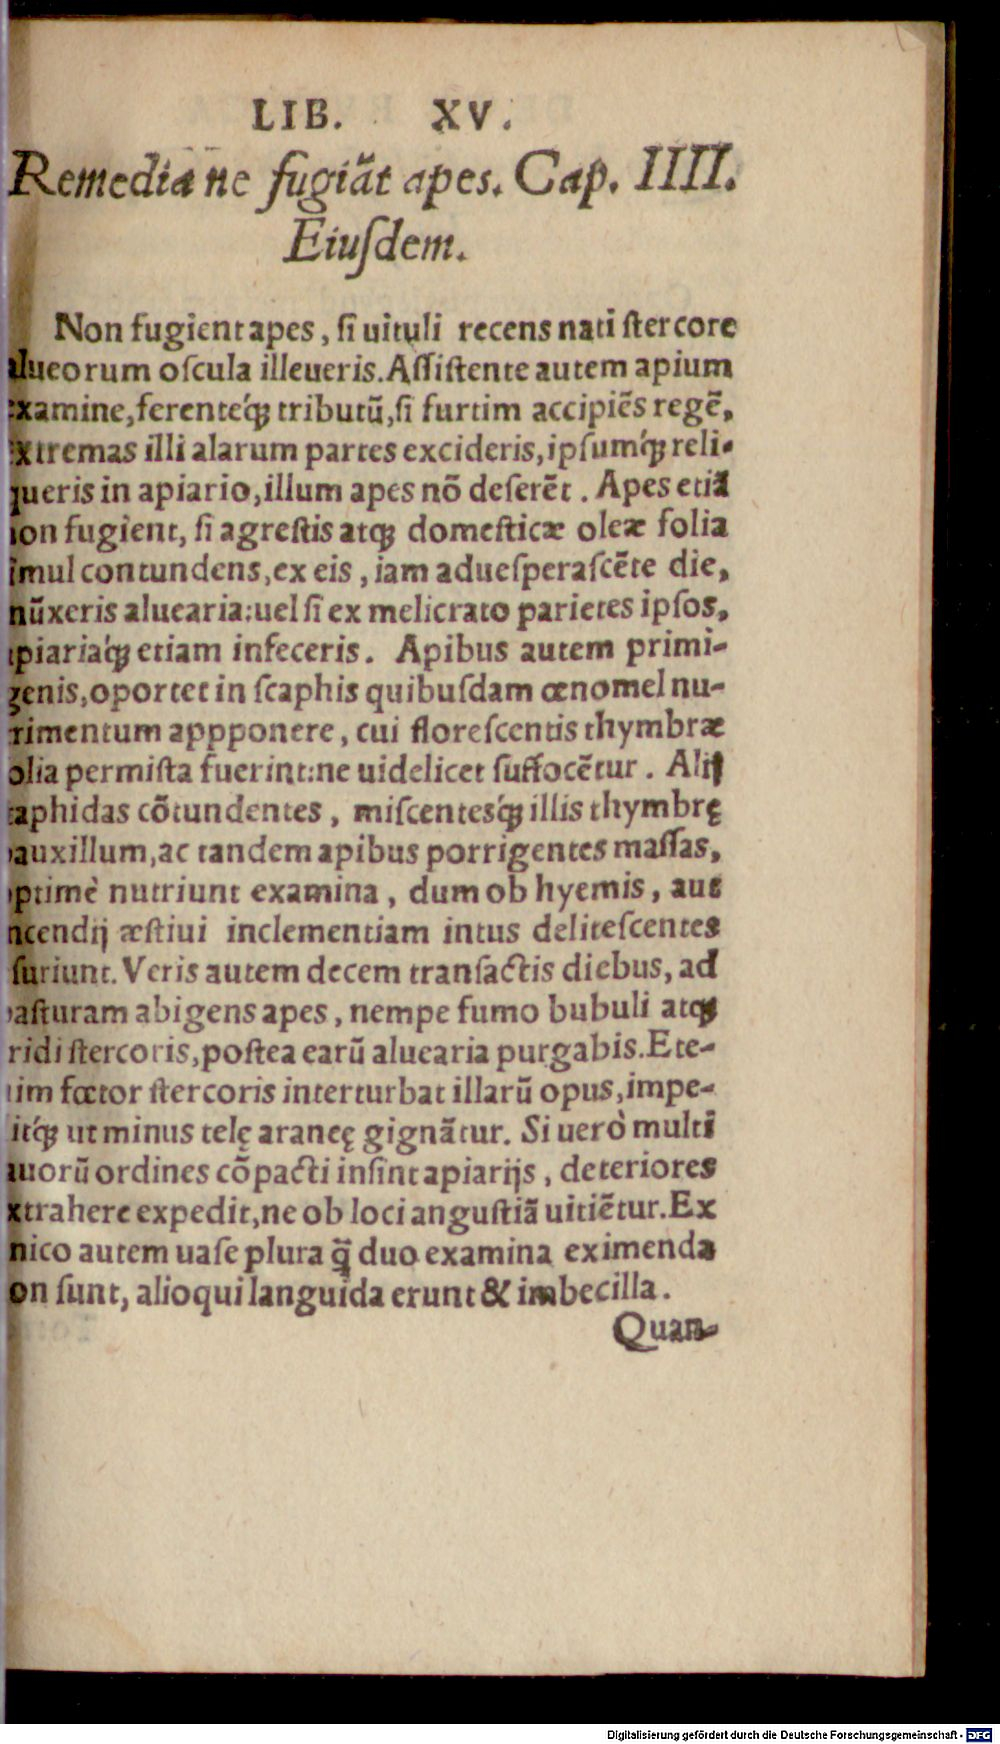 LIB. XV.
Remedia ne fugiãt apes. Cap. IIII.
Eiuſdem.
Non fugient apes, ſi uituli recens nati ſtercore
alueorum oſcula illeueris. Aſſiſtente autem apium
examine, ferenteq́ꝫ tributũ, ſi furtim accipiẽs regẽ,
extremas illi alarum partes excideris, ipſumq́ꝫ reli-
queris in apiario, illum apes nõ deſerẽt. Apes etiã
non fugient, ſi agreſtis atqꝫ domeſticæ oleæ folia
ſimul contundens, ex eis, iam adueſperaſcẽte die,
inũxeris aluearia: uel ſi ex melicrato parietes ipſos,
apiariaq́ꝫ etiam infeceris. Apibus autem primi-
genis, oportet in ſcaphis quibuſdam œnomel nu-
trimentum appponere, cui floreſcentis thymbræ
folia permiſta fuerint: ne uidelicet ſuffocẽtur. Alij
taphidas cõtundentes, miſcentesq́ꝫ illis thymbrę
pauxillum, ac tandem apibus porrigentes maſſas,
optimè nutriunt examina, dum ob hyemis, aut
incendij æſtiui inclementiam intus deliteſcentes
eſuriunt. Veris autem decem tranſactis diebus, ad
paſturam abigens apes, nempe fumo bubuli atqꝫ
aridi ſtercoris, poſtea earũ aluearia purgabis. Ete-
nim fœtor ſtercoris interturbat illarũ opus, impe-
ditq́ꝫ ut minus telę araneę gignãtur. Si uerò multi
fauorũ ordines cõpacti inſint apiarijs, deteriores
extrahere expedit, ne ob loci anguſtiã uitiẽtur. Ex
unico autem uaſe plura q̃ duo examina eximenda
non ſunt, alioqui languida erunt & imbecilla.
Quan-
Digitalisierung gefördert durch die Deutsche Forschungsgemeinschaft - DFG